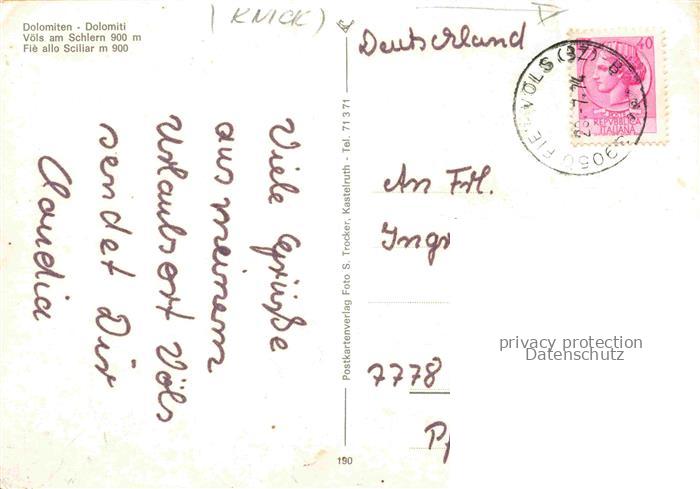 (KNICK)
Dolomiten - Dolomiti
Völs am Schlern 900 m
Fiè allo Sciliar m 900
Viele Grüße
aus meinem
Urlaubsort Völs
sendet Dir
Claudia
Postkartenverlag Foto S. Trocker, Kastelruth - Tel. 71371
190
Deutschland
An Frl.
Ingr
7778
40
POSTE
REPVBBLICA
ITALIANA
39050 FIE-VÖLS (BZ) B
privacy protection
Datenschutz